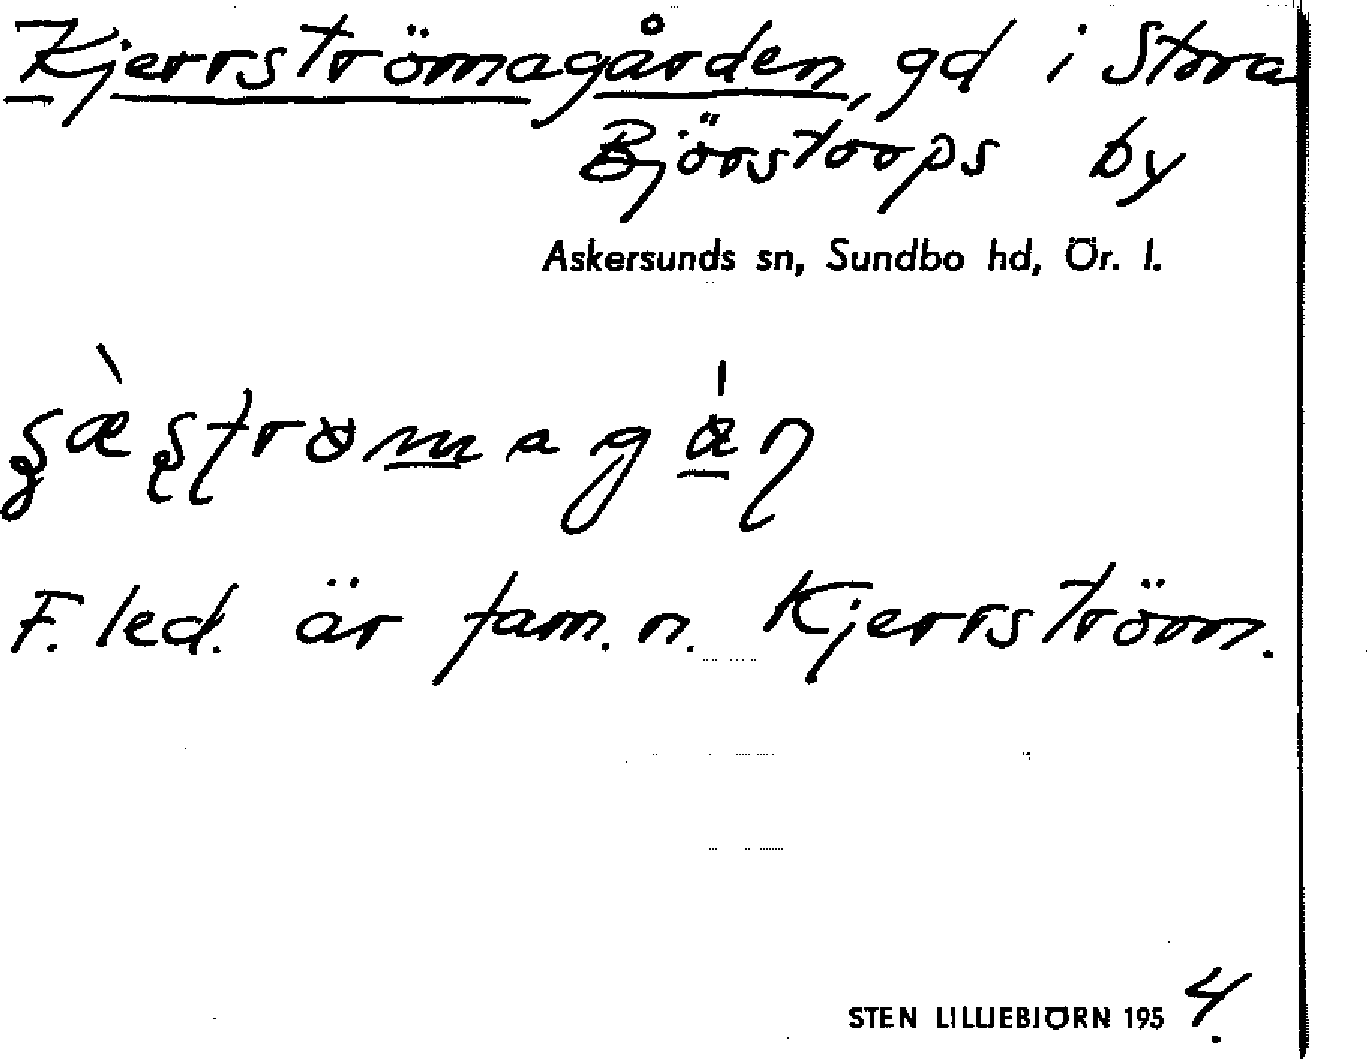 Kjerrströmagården, gd i Stora
Björstorps by
Askersunds sn, Sundbo hd, Ör. l.
F. led. är fam. n. Kjerrström.
STEN LILLIEBJÖRN 1954.